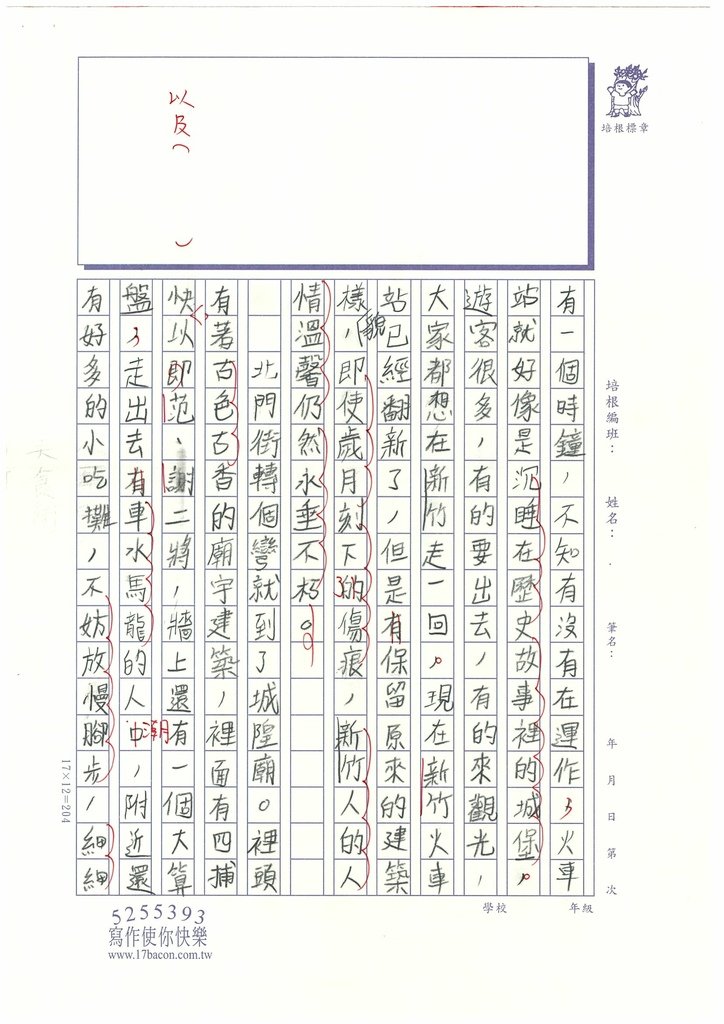 以及（　）
培根標章
培根編班：　姓名：　筆名：　年　月　日第　次
學校　年級
有一個時鐘，不知有沒有在運作，火車
站就好像是沉睡在歷史故事裡的城堡。
遊客很多，有的要出去，有的來觀光，
大家都想在新竹走一回。現在新竹火車
站已經翻新了，但是有保留原來的建築
貌
樣，即使歲月刻下的傷痕，新竹人的人
了
情溫馨仍然永垂不朽。
北門街轉個彎就到了城隍廟。裡頭
有著古色古香的廟宇建築，裡面有四捕
快以即范、謝二將，牆上還有一個大算
盤，走出去有車水馬龍的人中，附近還
潮
有好多的小吃攤，不妨放慢腳步，細細
17×12=204
5255393
寫作使你快樂
www.17bacon.com.tw